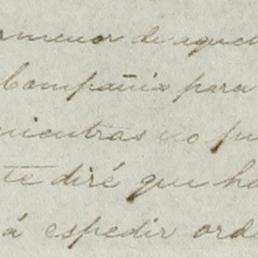 de aquel
Compañia para
mientras no pu
te diré que ha
á espedir orde